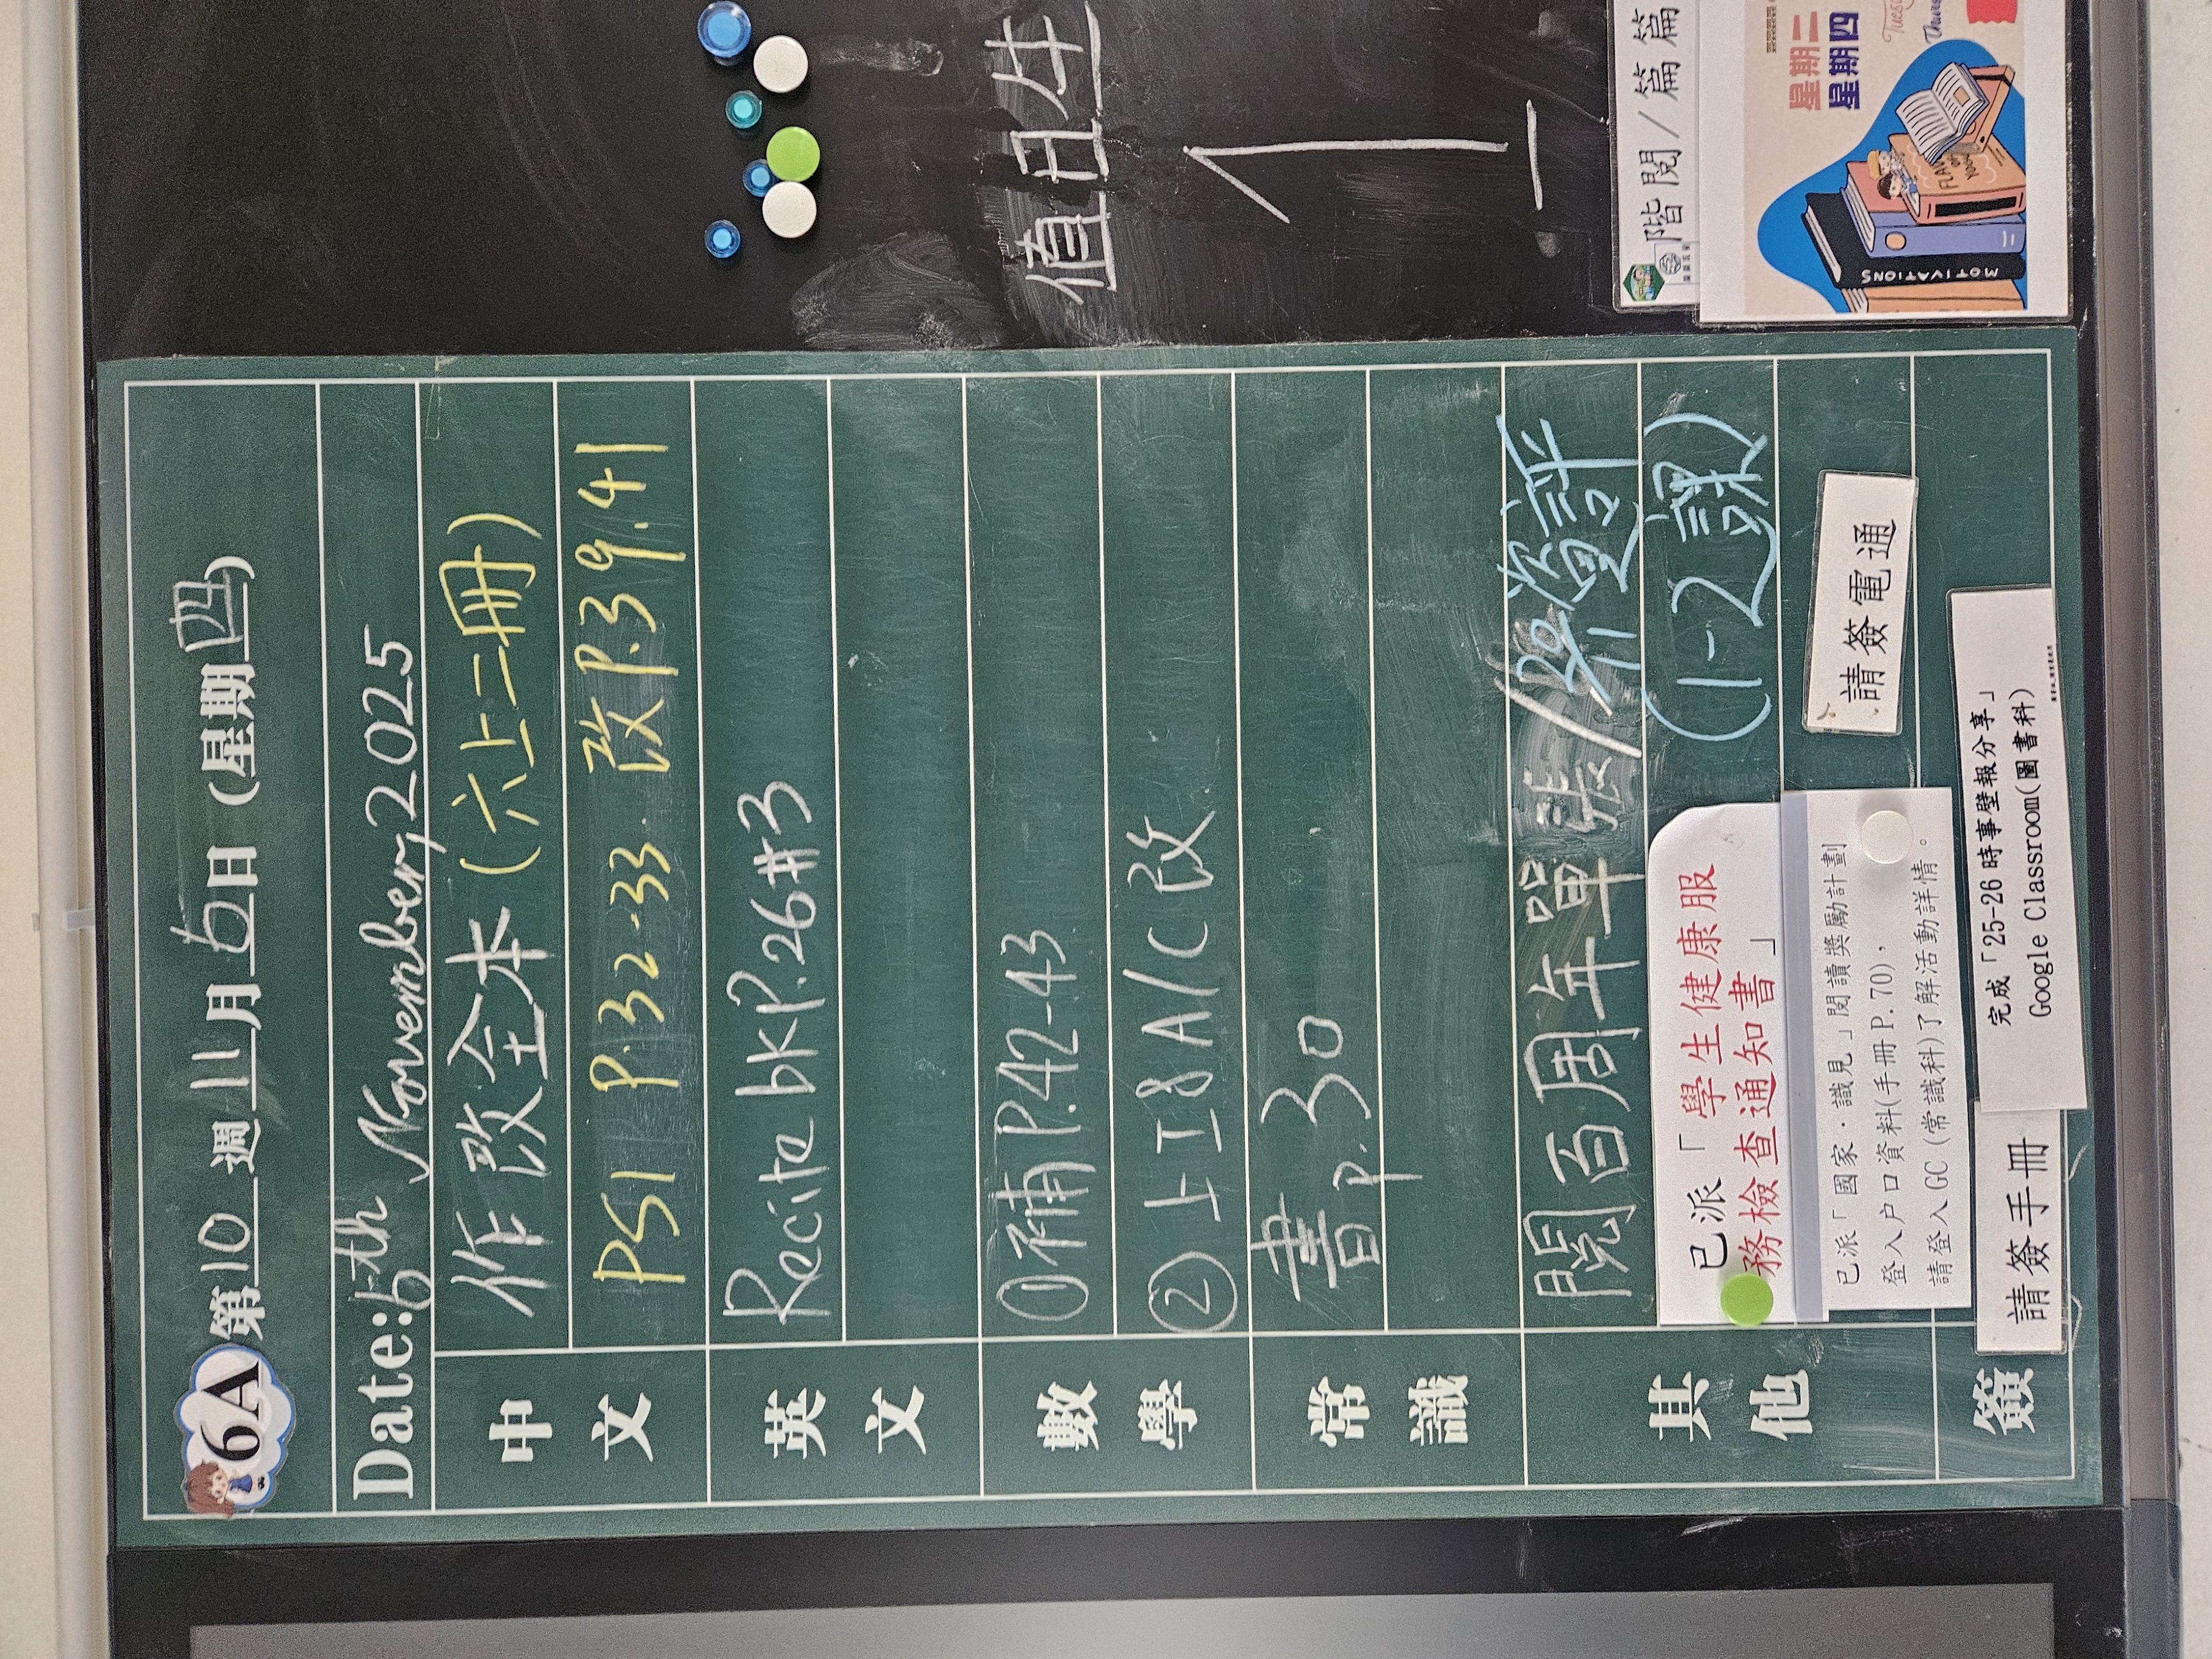 6A 第10週11月6日(星期四)
Date:6th November,2025
中文
作改全本(六上二冊)
PS1 P.32-33 改P.39.41
英文
Recite bk P.26#3
數學
①補P.42-43
②上I8A/C改
常識
書P.30
其他
閱百周年單張/
(1-2課)
已派「學生健康服
務檢查通知書」
已派「國家．識見」閱讀獎勵計劃
登入户口資料(手冊P.70),
請登入GC (常識科)了解活動詳情。
請簽電通
簽
請簽手冊
完成「25-26時事壁報分享」
Google Classroom(圖書科)
值日生
1
1
階閱/篇篇篇
星期二
星期四
MOTIVATIONS